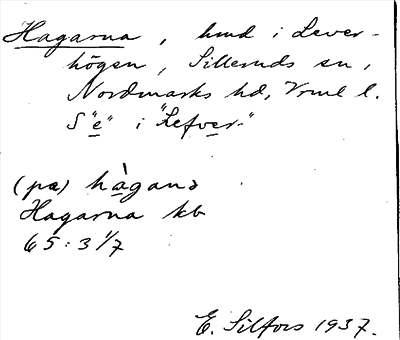 Hagarna, hmd i Lever-
högen, Silleruds sn,
Nordmarks hd, Vrml l.
S "e" i "Lefver-"
(pa) hàganə
Hagarna kb
65:3 1/7
E. Silfors 1937.